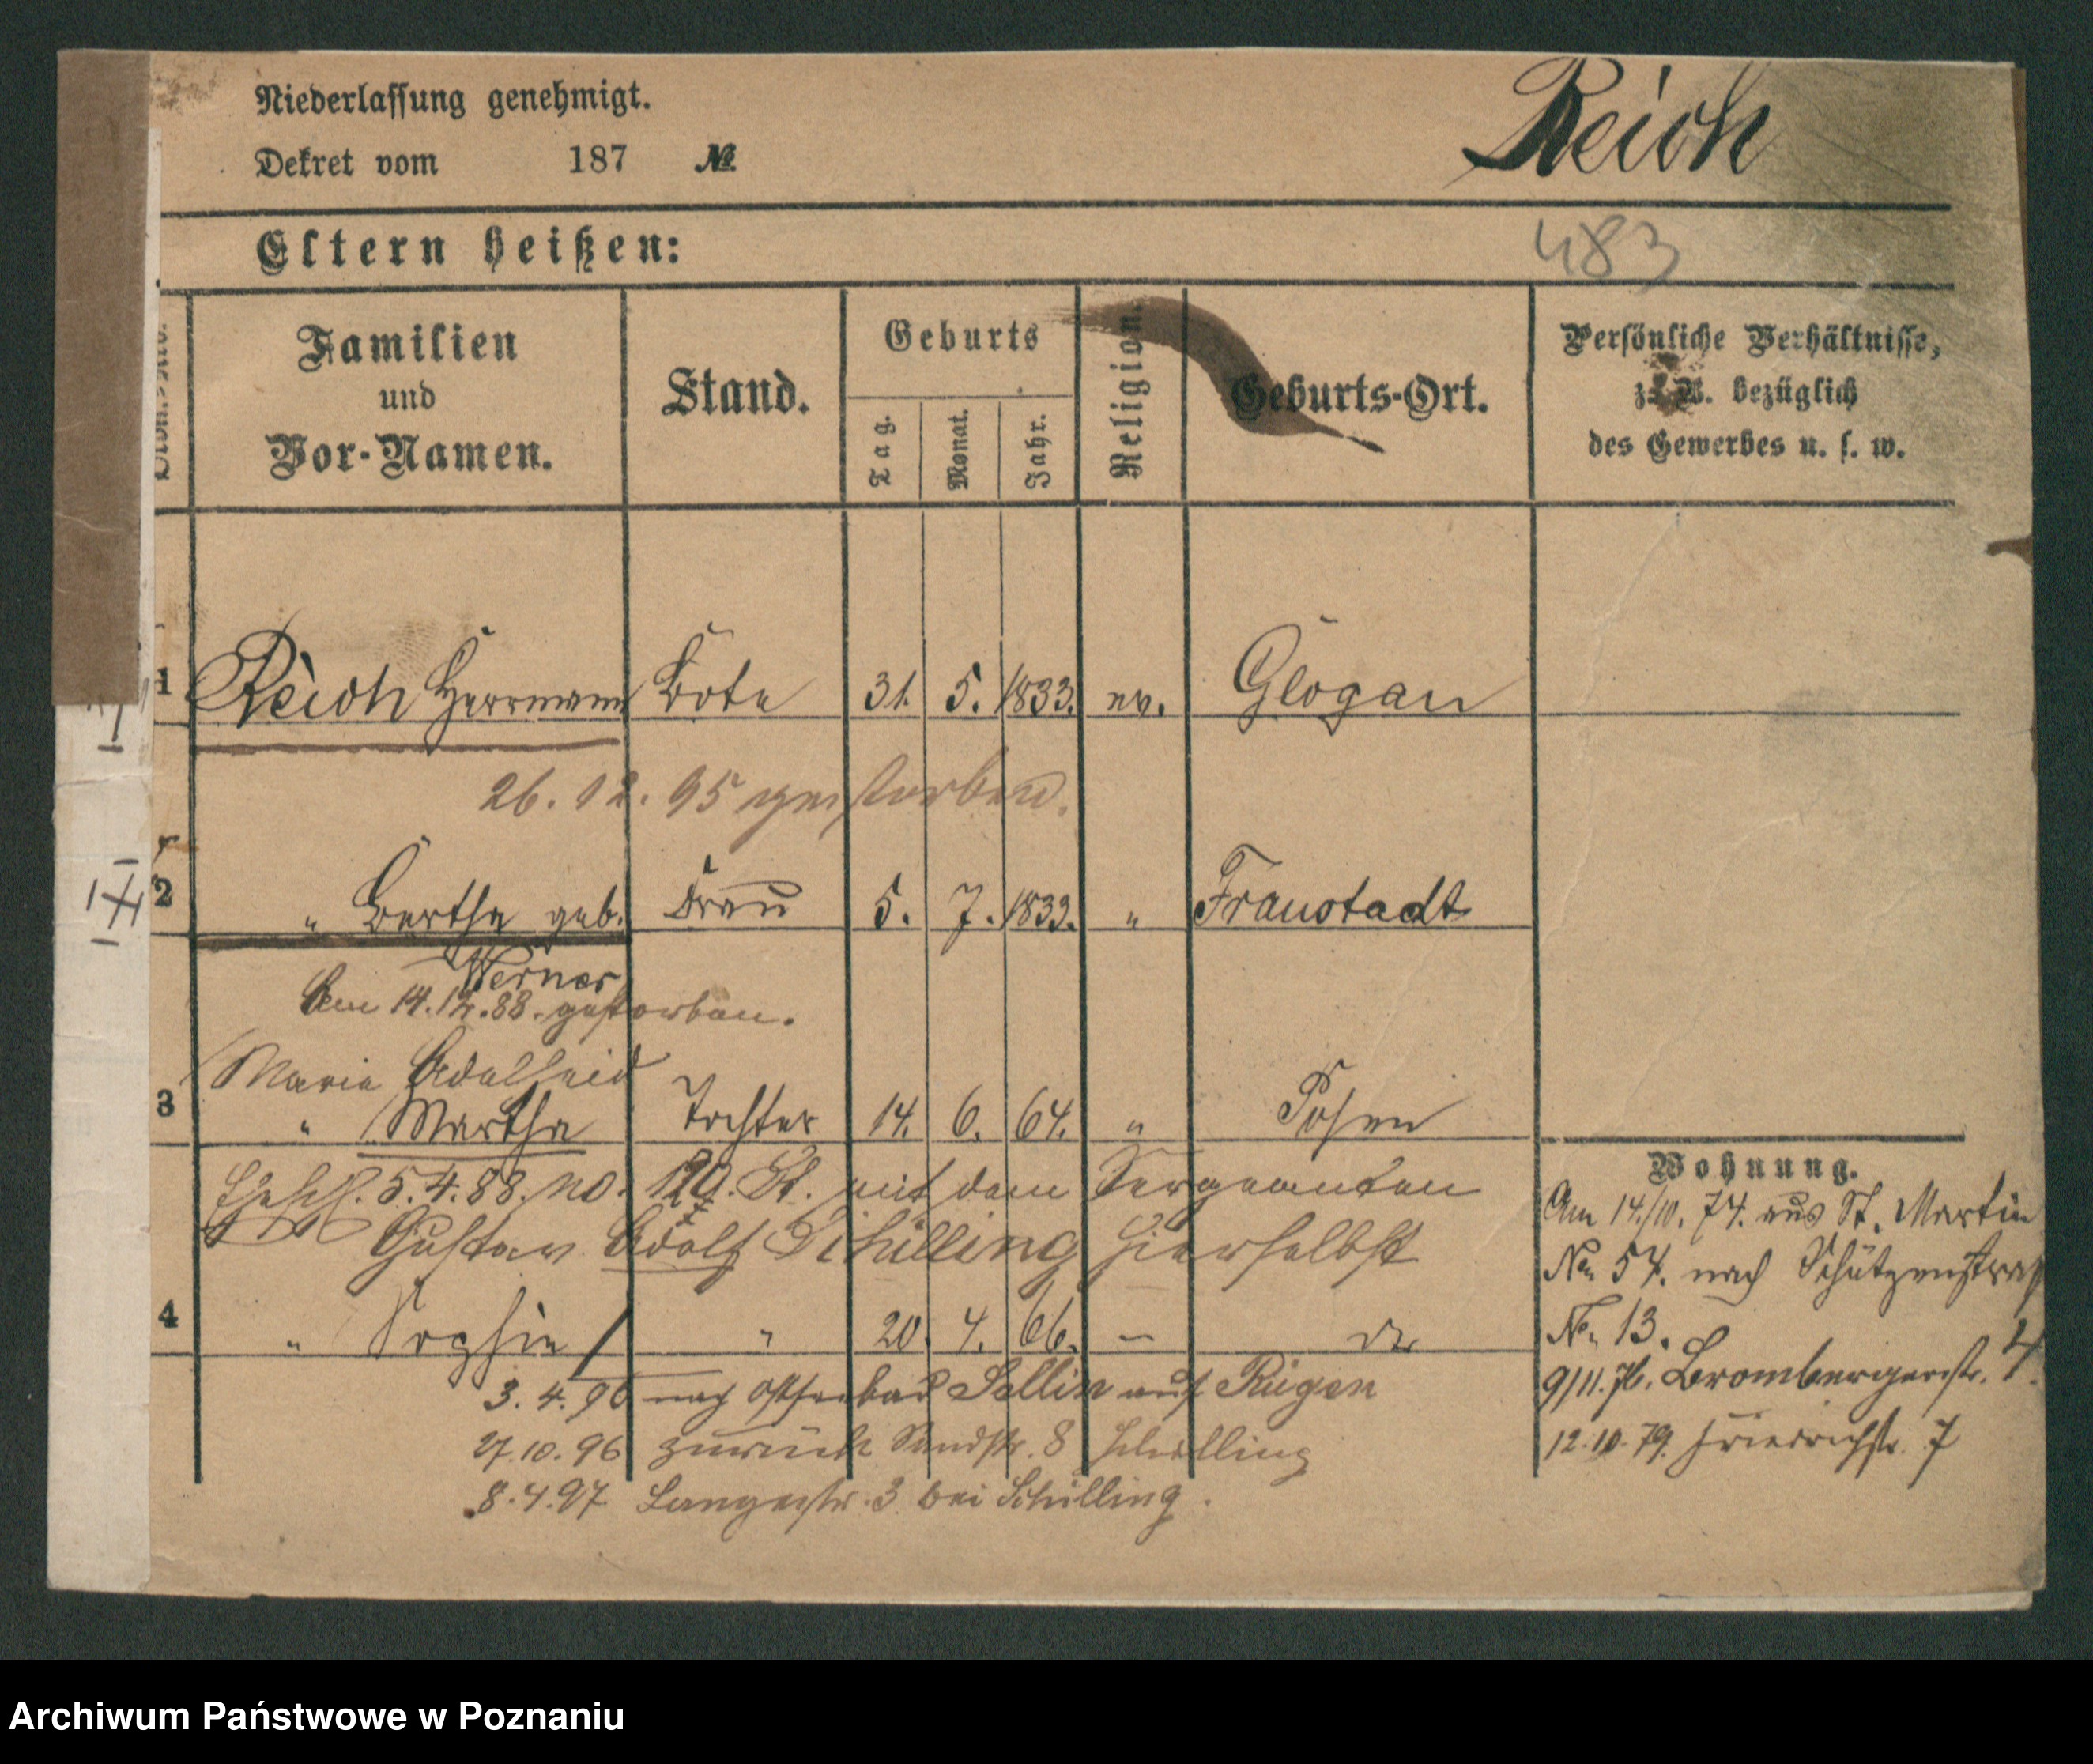 Niederlassung genehmigt.
Reich
Dekret vom 187 №
Eltern heißen:
483
Familien und Vor-Namen.
Stand.
Geburts
Tag.
Monat.
Jahr.
Religion.
Geburts-Ort.
Persönliche Verhältnisse,
z. B. bezüglich
des Gewerbes u. s. w.
1 Reich Herrmann Bote 31. 5. 1833. ev. Glogau
26. 12. 95 gestorben.
2 " Bertha geb. Frau 5. 7. 1833. " Fraustadt
Werner
Am 14.12.88. gestorben.
Maria Adelheid
3 " Martha Tochter 14. 6. 64. " Posen
Wohnung.
Eheschl. 5.4.88. No. 120. St. mit dem Sergeanten
Gustav Adolf Schilling hierselbst
4 " Sophie " 20. 4. 66. — do
3. 4. 96 nach Ostseebad Sellin auf Rügen
27.10.96 zurück Sandstr. 8 Schilling
8.4.97 Langestr. 3 bei Schilling.
Am 14./10. 74. aus St. Martin
No. 54. nach Schützenstraß
No. 13.
9/11. 76. Brombergerstr. 4.
12.10.79. Friedrichstr. 7
Archiwum Państwowe w Poznaniu